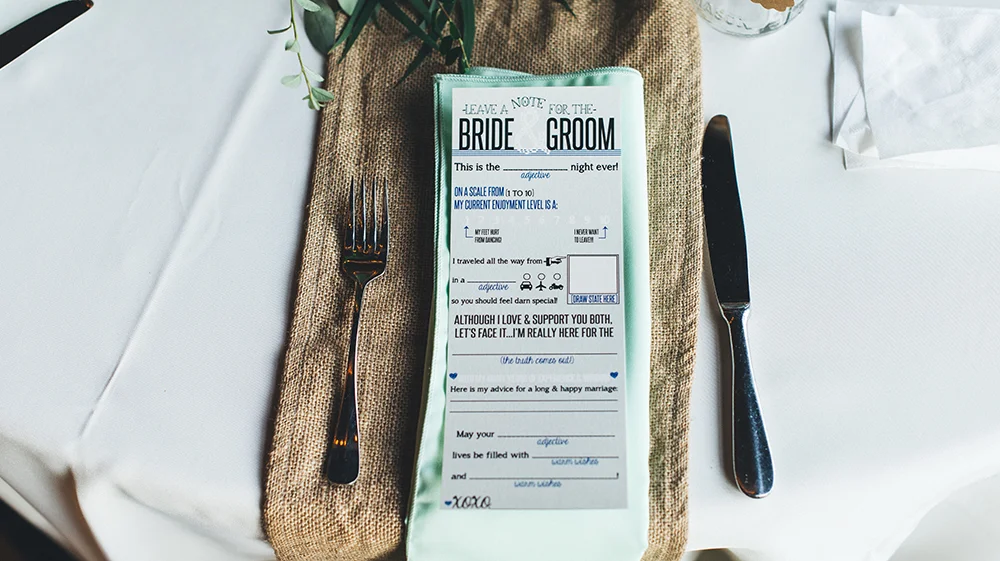 -LEAVE A NOTE FOR THE-
BRIDE & GROOM
This is the ____________ night ever!
adjective
ON A SCALE FROM (1 TO 10)
MY CURRENT ENJOYMENT LEVEL IS A:
1 2 3 4 5 6 7 8 9 10
MY FEET HURT
FROM DANCING!
I NEVER WANT
TO LEAVE!!!
I traveled all the way from
in a __________
adjective
DRAW STATE HERE
so you should feel darn special!
ALTHOUGH I LOVE & SUPPORT YOU BOTH,
LET'S FACE IT...I'M REALLY HERE FOR THE
(the truth comes out!)
Here is my advice for a long & happy marriage:
May your ____________
adjective
lives be filled with ____________
warm wishes
and ____________!
warm wishes
XOXO
MASON